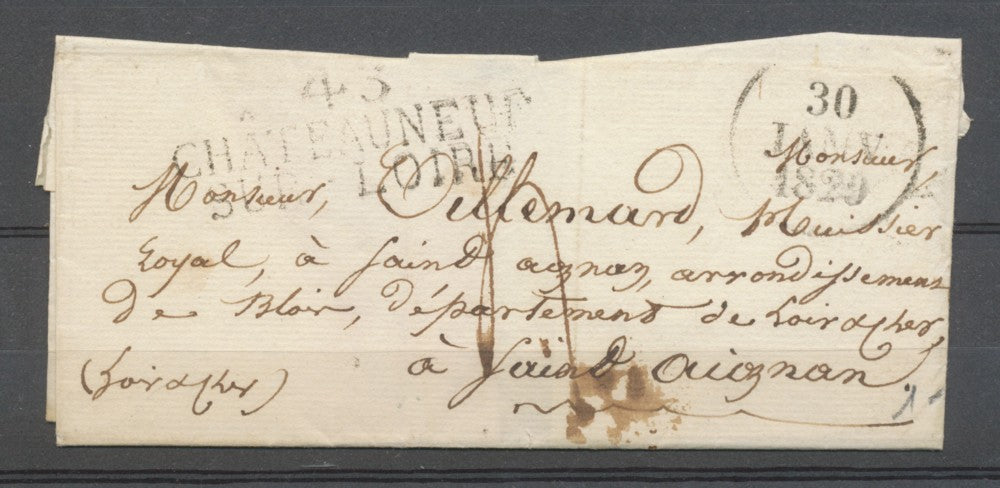 43
CHÂTEAUNEUF
SUR-LOIRE
30
JANV.
1829
Monsieur
Monsieur, Villemard, Huissier
Royal, à Saind aignan, arrondissement
De Blois, département de Loir & Cher,
à Saind Aignan.
(Loir & Cher)